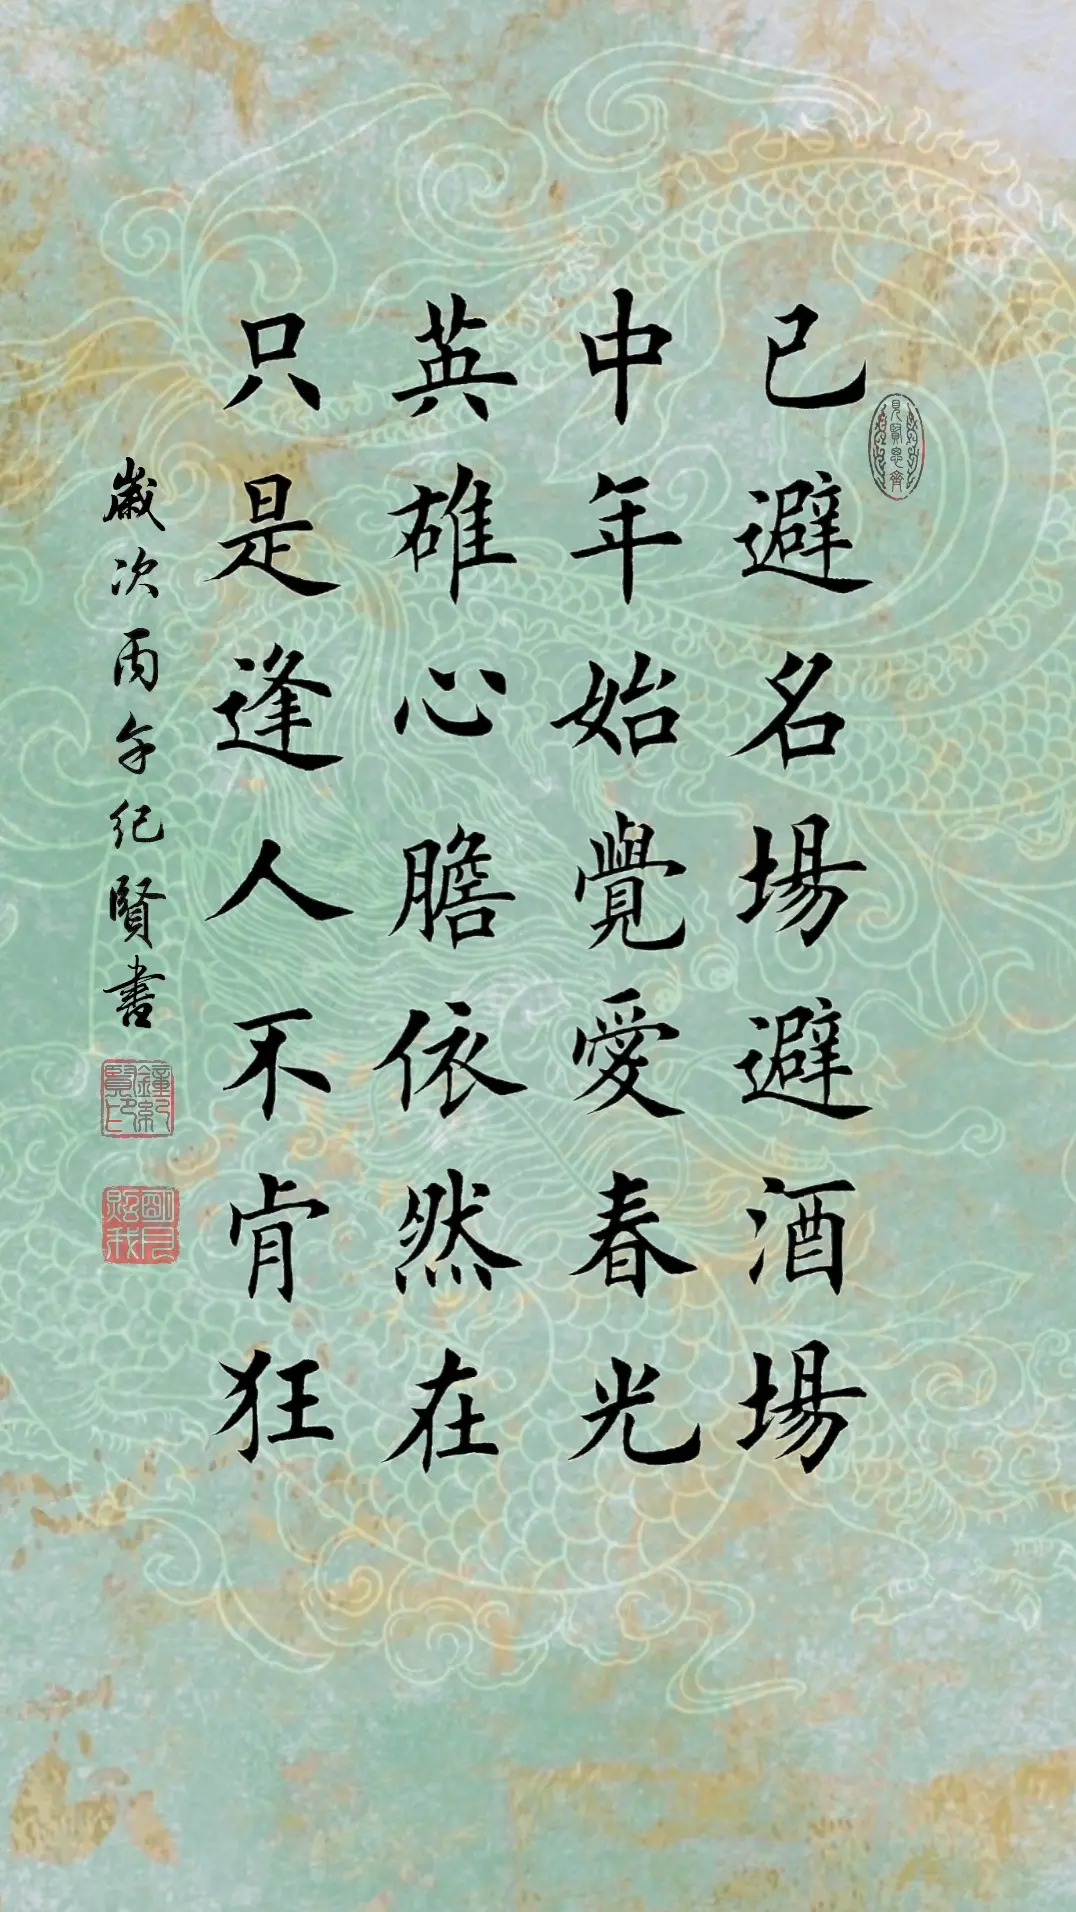 已避名場避酒場
中年始覺愛春光
英雄心膽依然在
只是逢人不肯狂
歲次丙午紀賢書
見賢思齊
鐘紀賢印